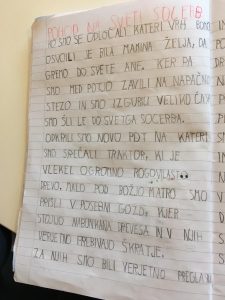 POHOD NA SVETI SOCERB
KO SMO SE ODLOČALI KATERI VRH BOMO
OSVOJILI JE BILA MAMINA ŽELJA, DA
GREMO DO SVETE ANE. KER PA
SMO MED POTJO ZAVILI NA NAPAČNO
STEZO IN SMO IZGUBILI VELIKO ČASA
SMO ŠLI LE DO SVETEGA SOCERBA.
ODKRILI SMO NOVO POT NA KATERI
SMO SREČALI TRAKTOR, KI JE
VLEKEL OGROMNO ROGOVILASTO
DREVO. MIMO SMO
PRIŠLI V POSEBNI GOZD, KJER
STOJIJO DREVESA IN V NJIH
VERJETNO PREBIVAJO ŠKRATJE.
ZA NJIH SMO BILI VERJETNO PREGLASNI